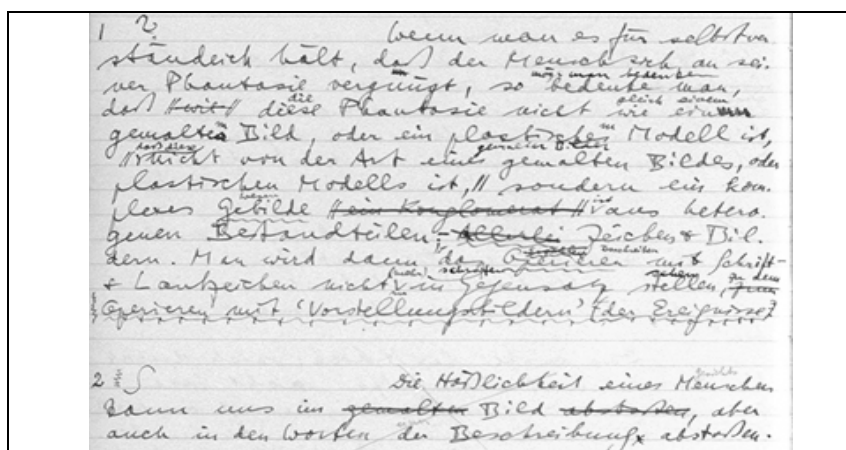 1 ? Wenn man es für selbstver
ständlich hält, daß der Mensch sich an sei-
ner Phantasie vergnügt, so bedenke man,
möge man bedenken
daß diese Phantasie nicht wie ein
die gleich einem
gemaltes Bild, oder ein plastisches Modell ist,
daß diese
nicht von der Art eines gemalten Bildes, oder
plastischen Modells ist, // sondern ein kom-
plexes Gebilde // ein Konglomerat // aus hetero-
genen Bestandteilen: Allerlei Zeichen & Bil-
dern. Man wird dann das Operieren mit Schrift-
& Lautzeichen nicht in Gegensatz stellen,
(mehr) zu dem
Operieren mit 'Vorstellungsbildern' der Ereignisse
2 ∫ Die Häßlichkeit eines Menschen
kann uns im gemalten Bild abstoßen, aber
auch in den Worten der Beschreibung, abstoßen.